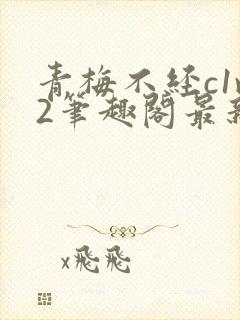 青梅不经c1v
2笔趣阁最新
x飛飛